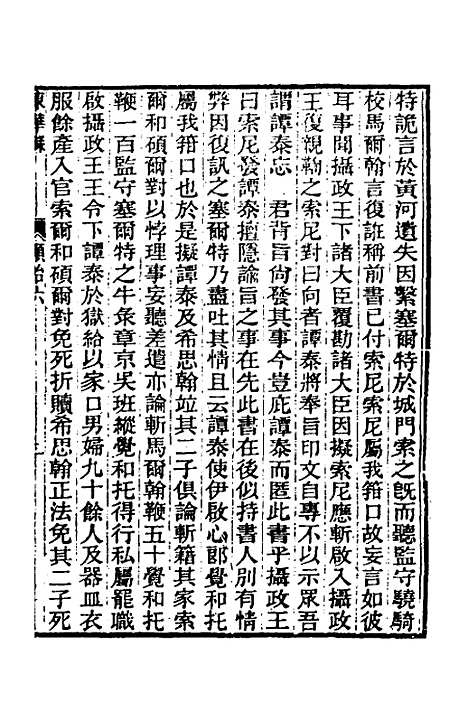 特詭言於黃河遺失因繫塞爾特於城門索之旣而聽監守驍騎
校馬爾翰言復誑稱前書已付索尼索尼屬我箝口故妄言如彼
耳事聞攝政王下諸大臣覆勘諸大臣因擬索尼應斬啟入攝政
王復親鞫之索尼對曰向者譚泰將奉旨印文自專不以示眾吾
謂譚泰忘 君背旨尙發其事今豈庇譚泰而匿此書乎攝政王
曰索尼發譚泰擅隱諭旨之事在先此書在後似持書人別有情
弊因復訊之塞爾特乃盡吐其情且云譚泰使伊啟心郎覺和托
屬我箝口也於是擬譚泰及希思翰竝其二子俱論斬籍其家索
爾和碩爾對以悖理事妄聽差遣亦論斬馬爾翰鞭五十覺和托
鞭一百監守塞爾特之牛彔章京吳班縱覺和托得行私屬罷職
啟攝政王王令下譚泰於獄給以家口男婦九十餘人及器皿衣
服餘產入官索爾和碩爾對免死折贖希思翰正法免其二子死
東華錄 順治六